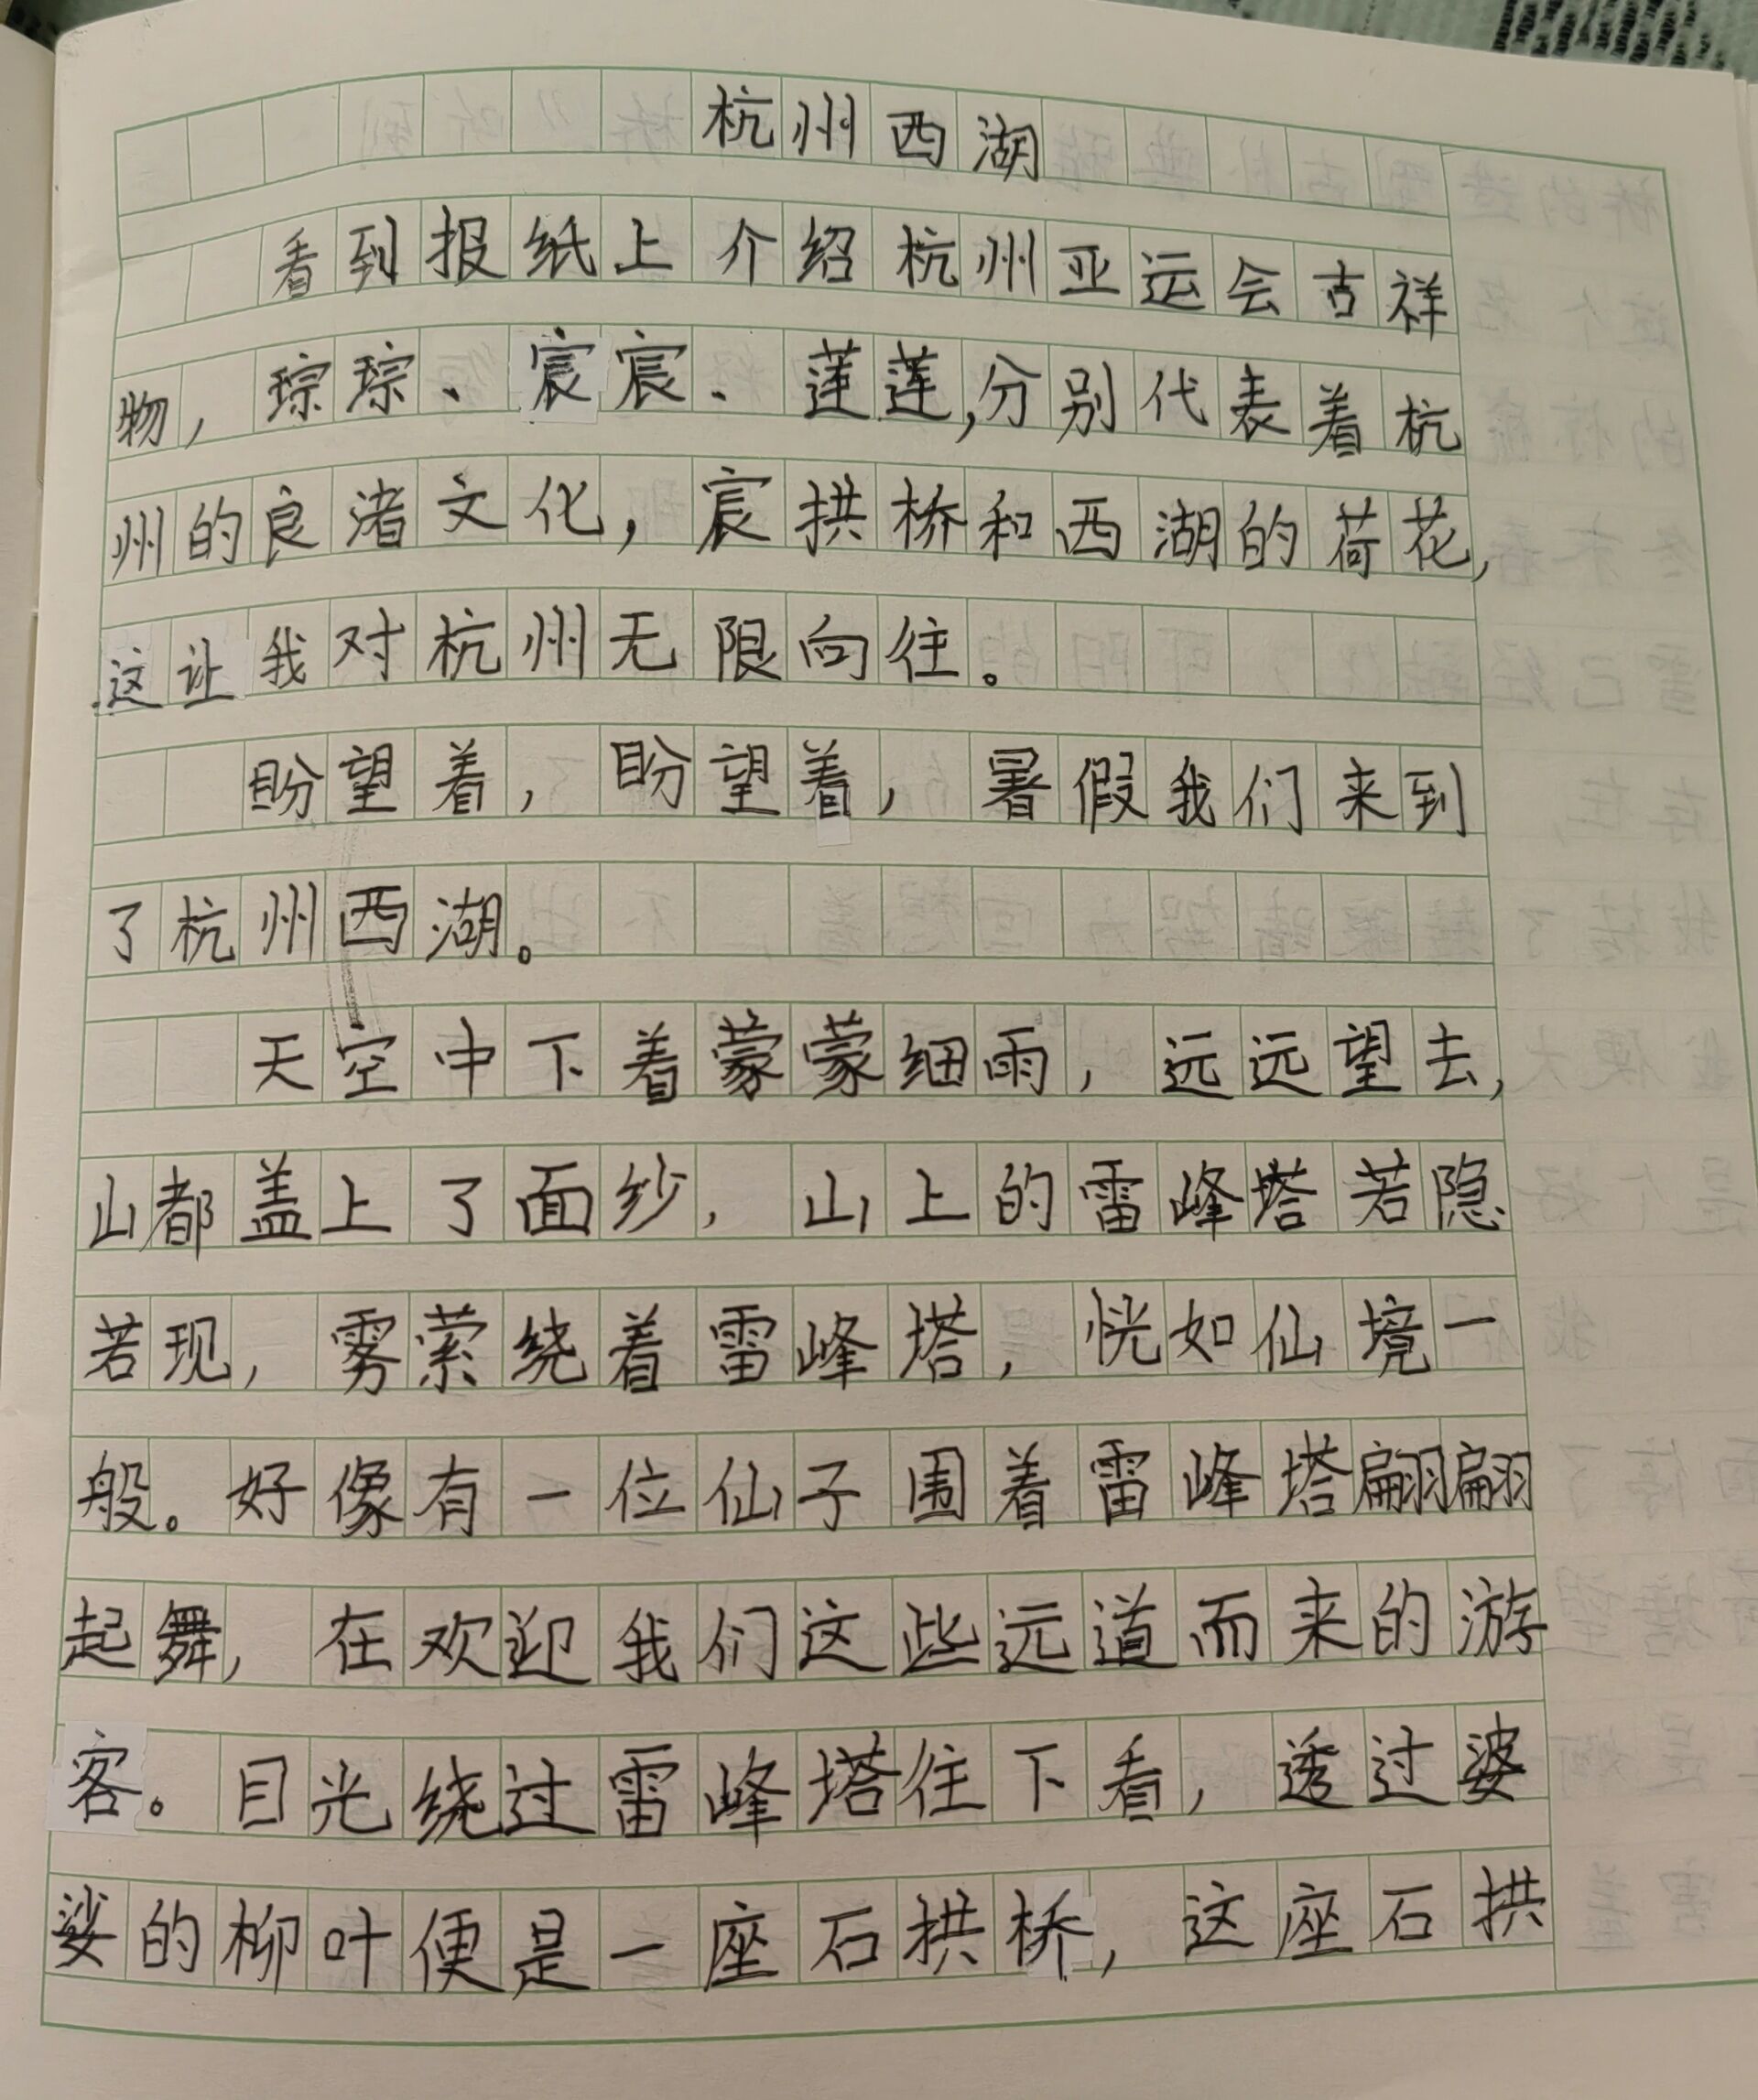 杭州西湖
看到报纸上介绍杭州亚运会吉祥
物，琮琮、宸宸、莲莲，分别代表着杭
州的良渚文化，宸拱桥和西湖的荷花，
这让我对杭州无限向往。
盼望着，盼望着，暑假我们来到
了杭州西湖。
天空中下着蒙蒙细雨，远远望去，
山都盖上了面纱，山上的雷峰塔若隐
若现，雾萦绕着雷峰塔，恍如仙境一
般。好像有一位仙子围着雷峰塔翩翩
起舞，在欢迎我们这些远道而来的游
客。目光绕过雷峰塔往下看，透过婆
娑的柳叶便是一座石拱桥，这座石拱